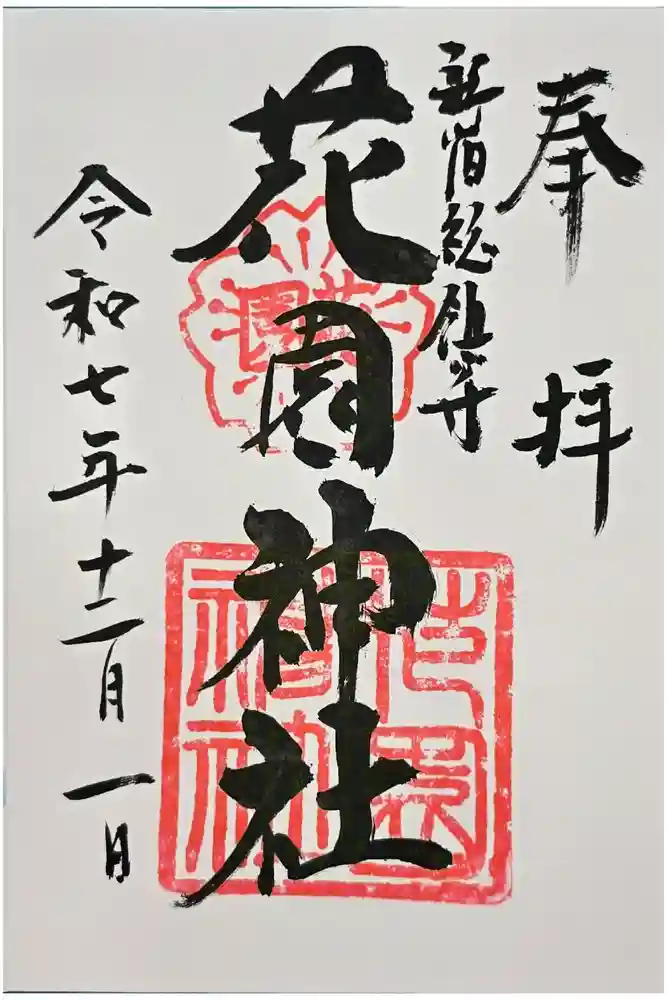 奉拝
新宿総鎮守
花園神社
令和七年十二月一日